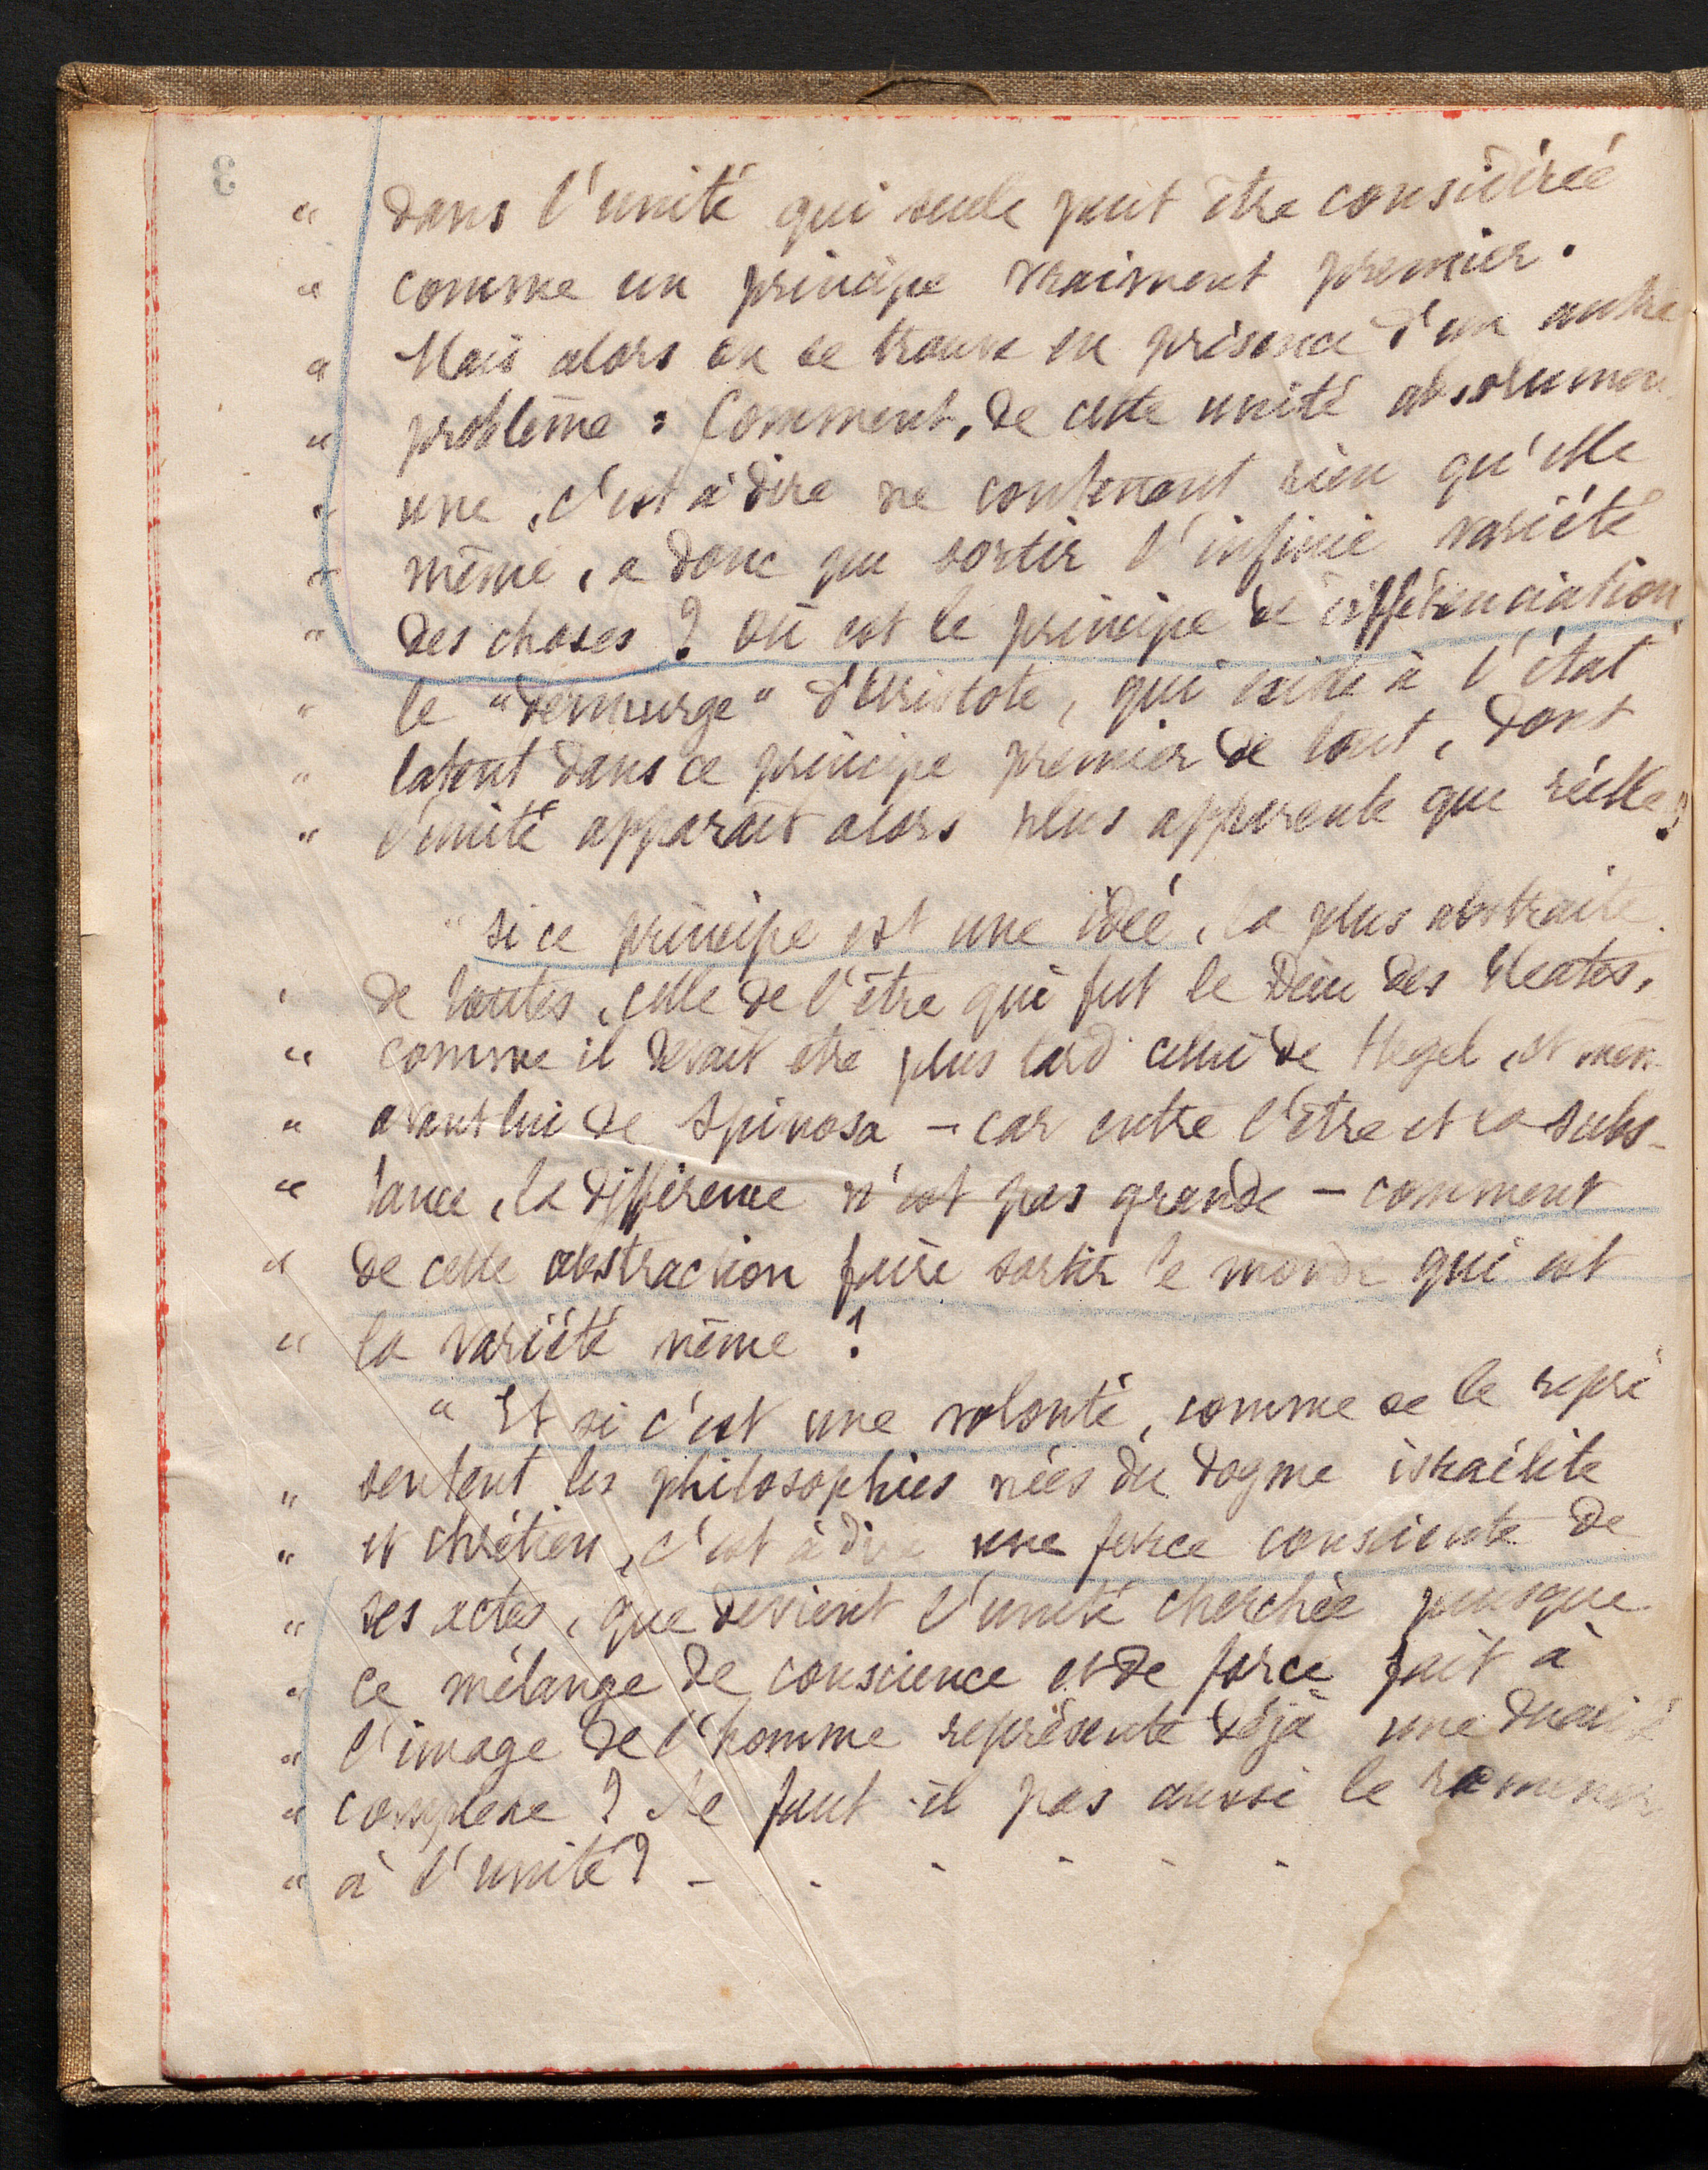 3
" dans l'unité qui seule peut être considérée
" comme un principe vraiment premier.
" Mais alors on se trouve en présence d'un autre
" problème : Comment, de cette unité absolumen
" une, c'est à dire ne contenant rien qu'elle
" même, a donc pu sortir l'infinie variété
" des choses ? Où est le principe de différenciation
" le "demiurge" d'Aristote, qui existe à l'état
" latent dans ce principe premier de tout, dont
" l'unité apparait alors plus apparente que réelle ?
" Si ce principe est une idée, la plus abstraite
" de toutes, celle de l'être qui fut le Dieu des Eleates,
" comme il devait être plus tard celui de Hegel, et mêm
" avant lui de Spinosa - car entre l'être et la subs-
" tance, la différence n'est pas grande - comment
" de cette abstraction faire sortir le monde qui est
" la variété même ?
" Et si c'est une volonté, comme se le repré
" sentent les philosophies nées du dogme israélite
" et chrétien, c'est à dire une force consciente de
" ses actes, que devient l'unité cherchée puisque
" ce mélange de conscience et de force fait à
" l'image de l'homme représente déjà une dualité
" complexe ? Ne faut-il pas aussi le ramener
" à l'unité ? - . . . . .